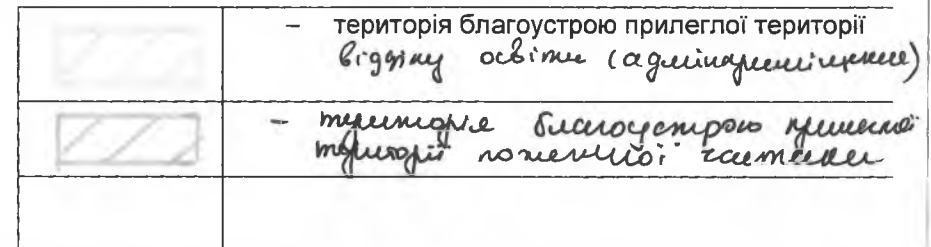 – територія благоустрою прилеглої території
відділу освіти (адмінприміщення)
– територія благоустрою прилеглої
території пожежної частини